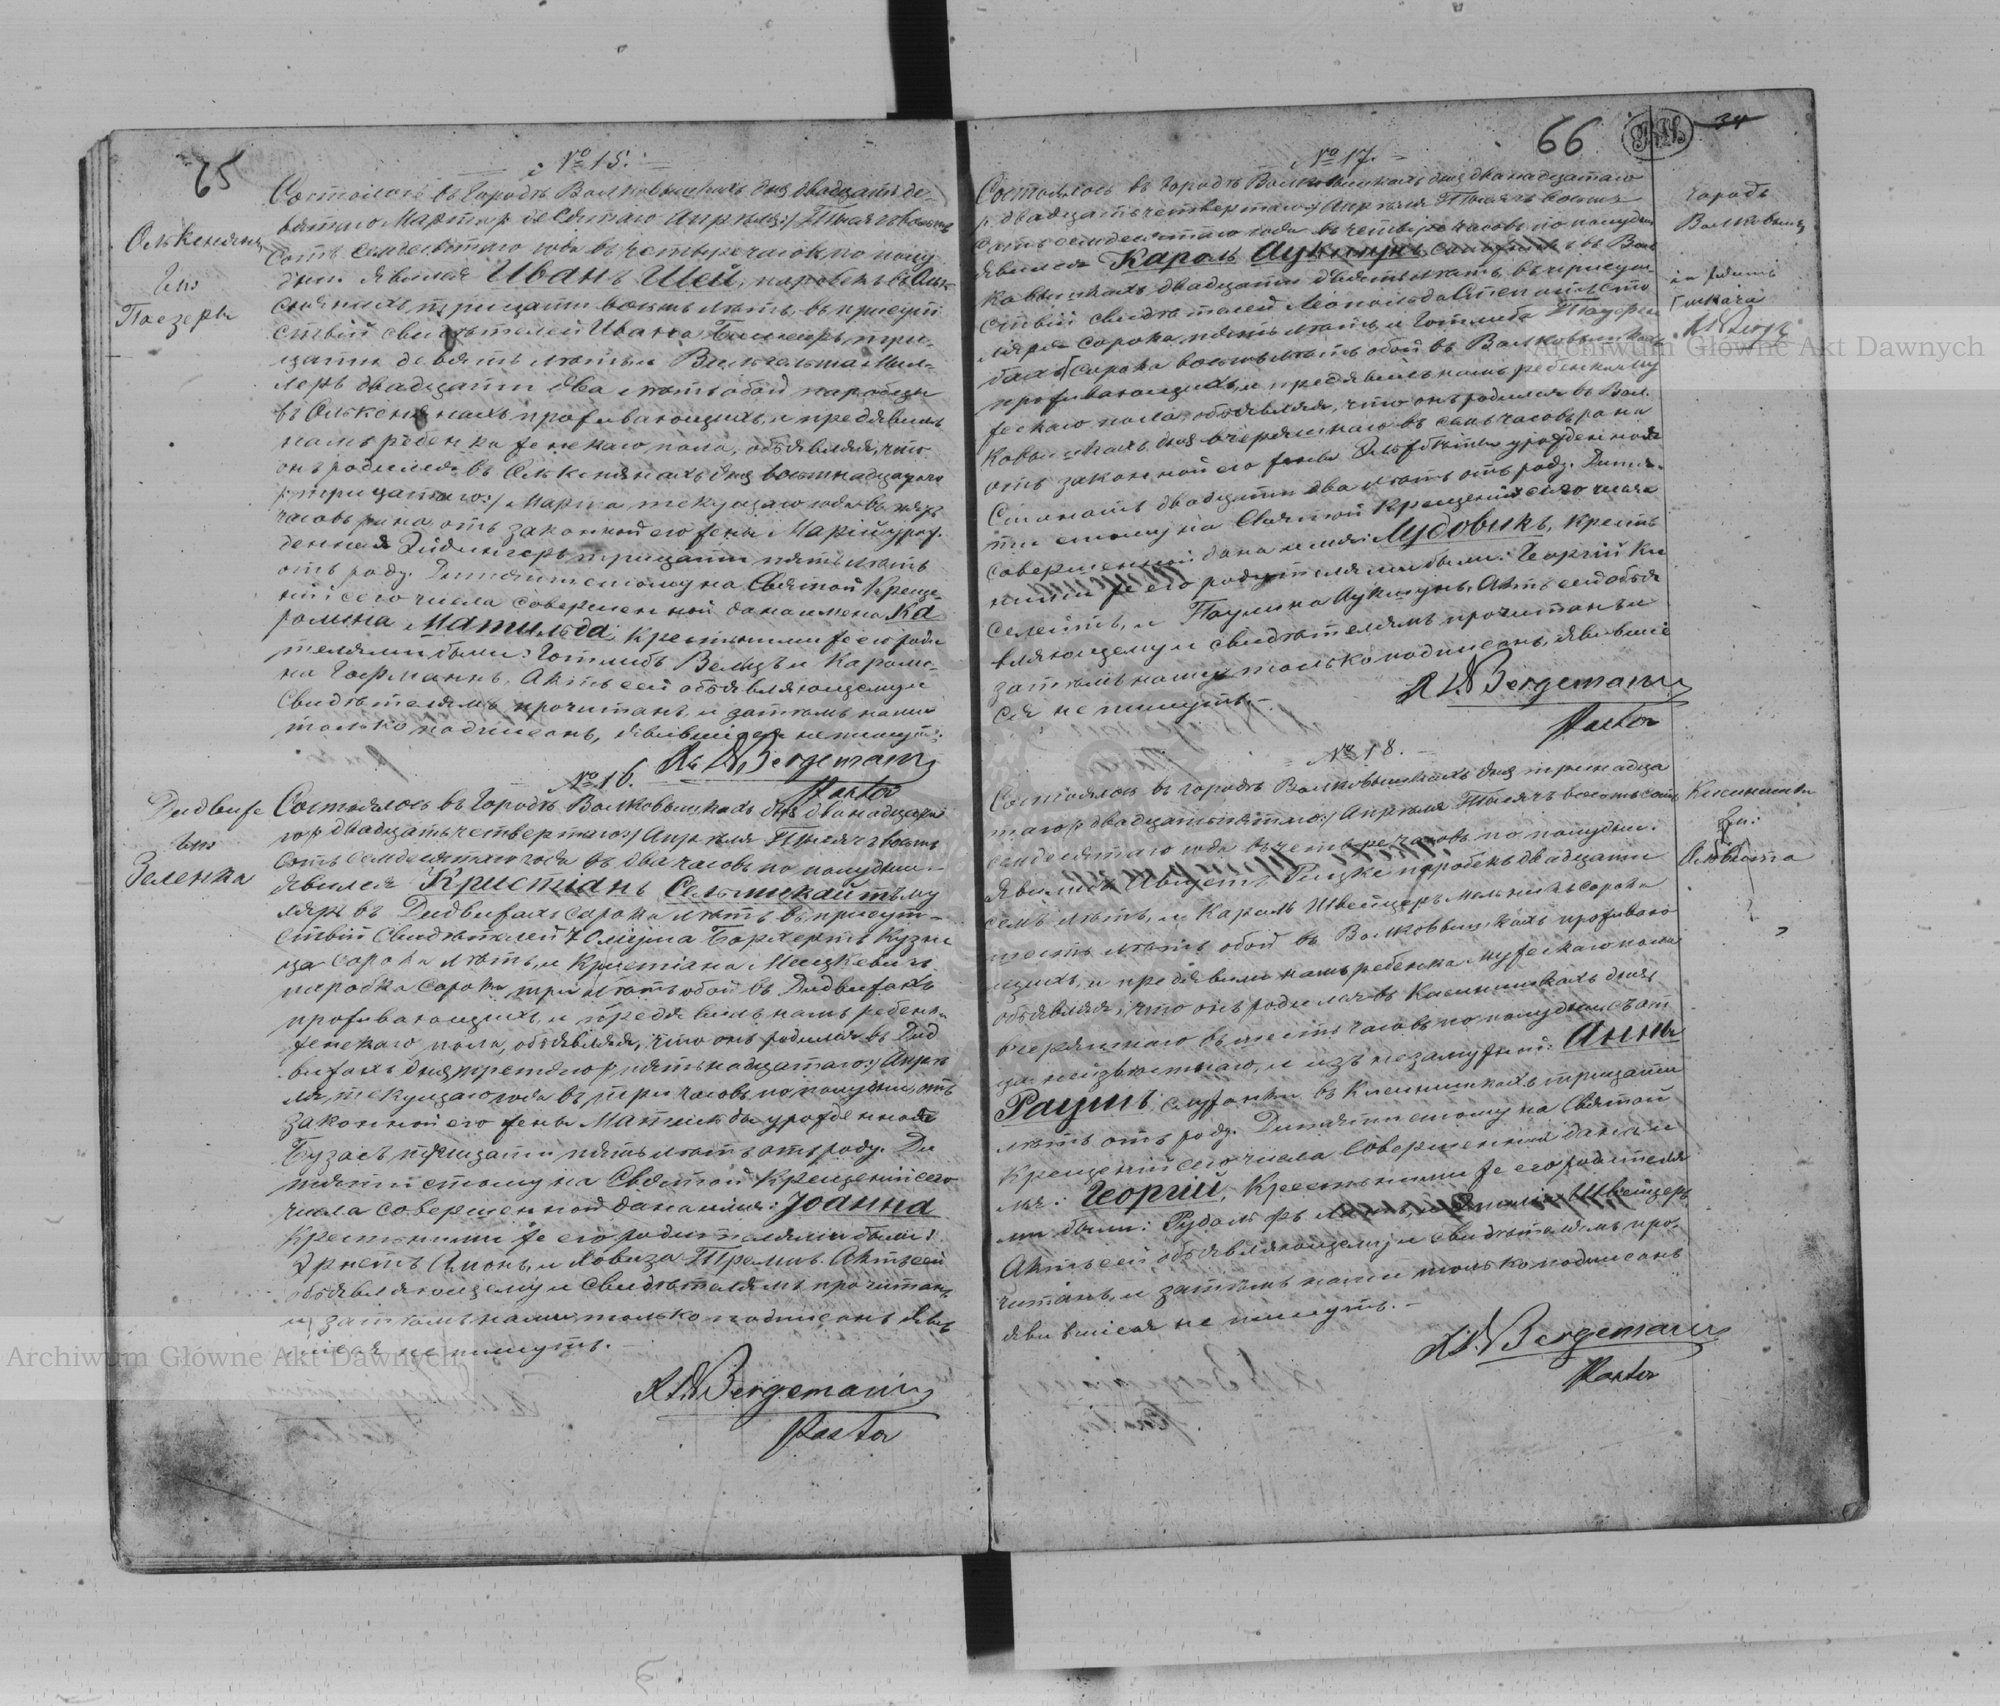 65
Олькеняны
Гмз
Поезеры
№ 15.
Состоялось въ Городѣ Волковышкахъ дня двадцать де-
вятаго Марта /: десятаго Апрѣля :/ Тысяча восемь
сотъ семдесятаго года въ четыре часовъ по полу
дни. Явился Иванъ Шей, паробекъ въ Оль
кенянахъ, тридцати восемь лѣтъ, въ присут
ствіи свидѣтелей Ивана три-
дцати девять лѣтъ и Вильгельма Мил-
леръ двадцати два лѣтъ обой паробцы
въ Олькенянахъ проживающихъ, и предявилъ
намъ ребенка женскаго пола, объявляя, что
онъ родился въ Олькенянахъ дня восемнадцатаго
/: тридцатаго :/ Марта текущаго года въ пять
часовъ рана, отъ законной его жены Маріи урож.
денная Эйдингеръ тридцати пять лѣтъ
отъ роду. Дитяти етому на Святой Креще-
ніи сего числа совершенной дана имена Ка
ролина Матильда, Крестными же его роди
телями были: Готлибъ Велцъ и Кароли-
на Гофманнъ. Актъ сей объявляющему и
Свидѣтелямъ прочитанъ и затѣмъ нами
только подписанъ, явившіеся не пишутъ.
R L W Bergemann
Pastor
Дидвиже
Гмз
Зеленка
№ 16.
Состоялось въ Городѣ Волковышкахъ дня двѣнадцата
го /: двадцать четвертаго :/ Апрѣля Тысяча восемь
сотъ семдесятаго года въ два часовъ по полудни.
Явился Кристіанъ Сельмикайтъ му
ляръ въ Дидвижахъ сорока лѣтъ въ присут-
ствіи Свидѣтелей Юліуса Борхертъ Кузне
ца сорока лѣтъ, и Кристіана Мицкевичъ
паробка сорока три лѣтъ обой въ Дидвижахъ
проживающихъ и предявилъ намъ ребенка
женскаго пола, объявляя, что онъ родился въ Дид
вижахъ дня третяго /: пятьнадцатаго :/ Апрѣ
ля, текущаго года въ три часовъ по полудни, отъ
законной его жены Матильды урожденная
Бузасъ тридцати пять лѣтъ отъ роду. Ди
тяти етому на Святой Крещеніи сего
числа совершенной дана имя: Іоанна
Крестными же его родителями были:
Эрнстъ Амонъ, и Ловиза Тремпъ. Актъ сей
объявляющему и Свидѣтелямъ прочитанъ
и затѣмъ нами только подписанъ Явив
шіеся не пишутъ.
R L W Bergemann
Pastor
66
34
№ 17.
Городъ
Волковышки
Состоялось въ Городѣ Волковышкахъ дня двѣнадцатаго
/: двадцать четвертаго :/ Апрѣля Тысяча восемь
сотъ семдесятаго года въ четыре часовъ по полудни
явился Кароль Аукшунъ въ Вол
ковышкахъ двадцати девять лѣтъ въ присут-
ствіи свидѣтелей Леопольда сто
ляра сорока пять лѣтъ и Готлиба
сорока восемь лѣтъ обой въ Волковышкахъ
проживающихъ, и предявилъ намъ ребенка му
жескаго пола, объявляя, что онъ родился въ Вол
ковышкахъ дня вчеряшнаго въ семь часовъ рана
отъ законной его жены Елжбѣты урожденная
двадцати два лѣтъ отъ роду. Дитя-
ти етому на Святой Крещеніи сего числа
совершенной дана имя: Лудовикъ, Крест
ными же его родителями были: Георгій Ки
и Паулина Аукшунъ. Актъ сей объя
вляющему и свидѣтелямъ прочитанъ и
затѣмъ нами только подписанъ, явившіе
ся не пишутъ.
R L W Bergemann
Pastor
Гмз:
№ 18.
Состоялось въ Городѣ Волковышкахъ дня тринадца
таго /: двадцать пятаго :/ Апрѣля Тысяча восемь сотъ
семдесятаго года въ четыре часовъ по полудни.
Явился Августъ паробекъ двадцати
семь лѣтъ, и Кароль Швейцеръ мельникъ сорока
шесть лѣтъ обой въ Волковышкахъ проживаю
щихъ, и предявили намъ ребенка мужескаго пола
объявляя, что онъ родился въ дня
вчеряшнаго въ шесть часовъ по полудни съ от
ца неизвѣстнаго, и изъ незамужной: Анны
Раушъ, служанки въ тридцати
лѣтъ отъ роду. Дитяти етому на Святой
Крещеніи сего числа Совершенной дана и
мя: Георгій, Крестными же его родителя
ми были: Рудольфъ и Швейцеръ
Актъ сей объявляющему и свидѣтелямъ про-
читанъ, и затѣмъ нами только подписанъ
явившіеся не пишутъ.
R L W Bergemann
Pastor
Archiwum Główne Akt Dawnych
Archiwum Główne Akt Dawnych